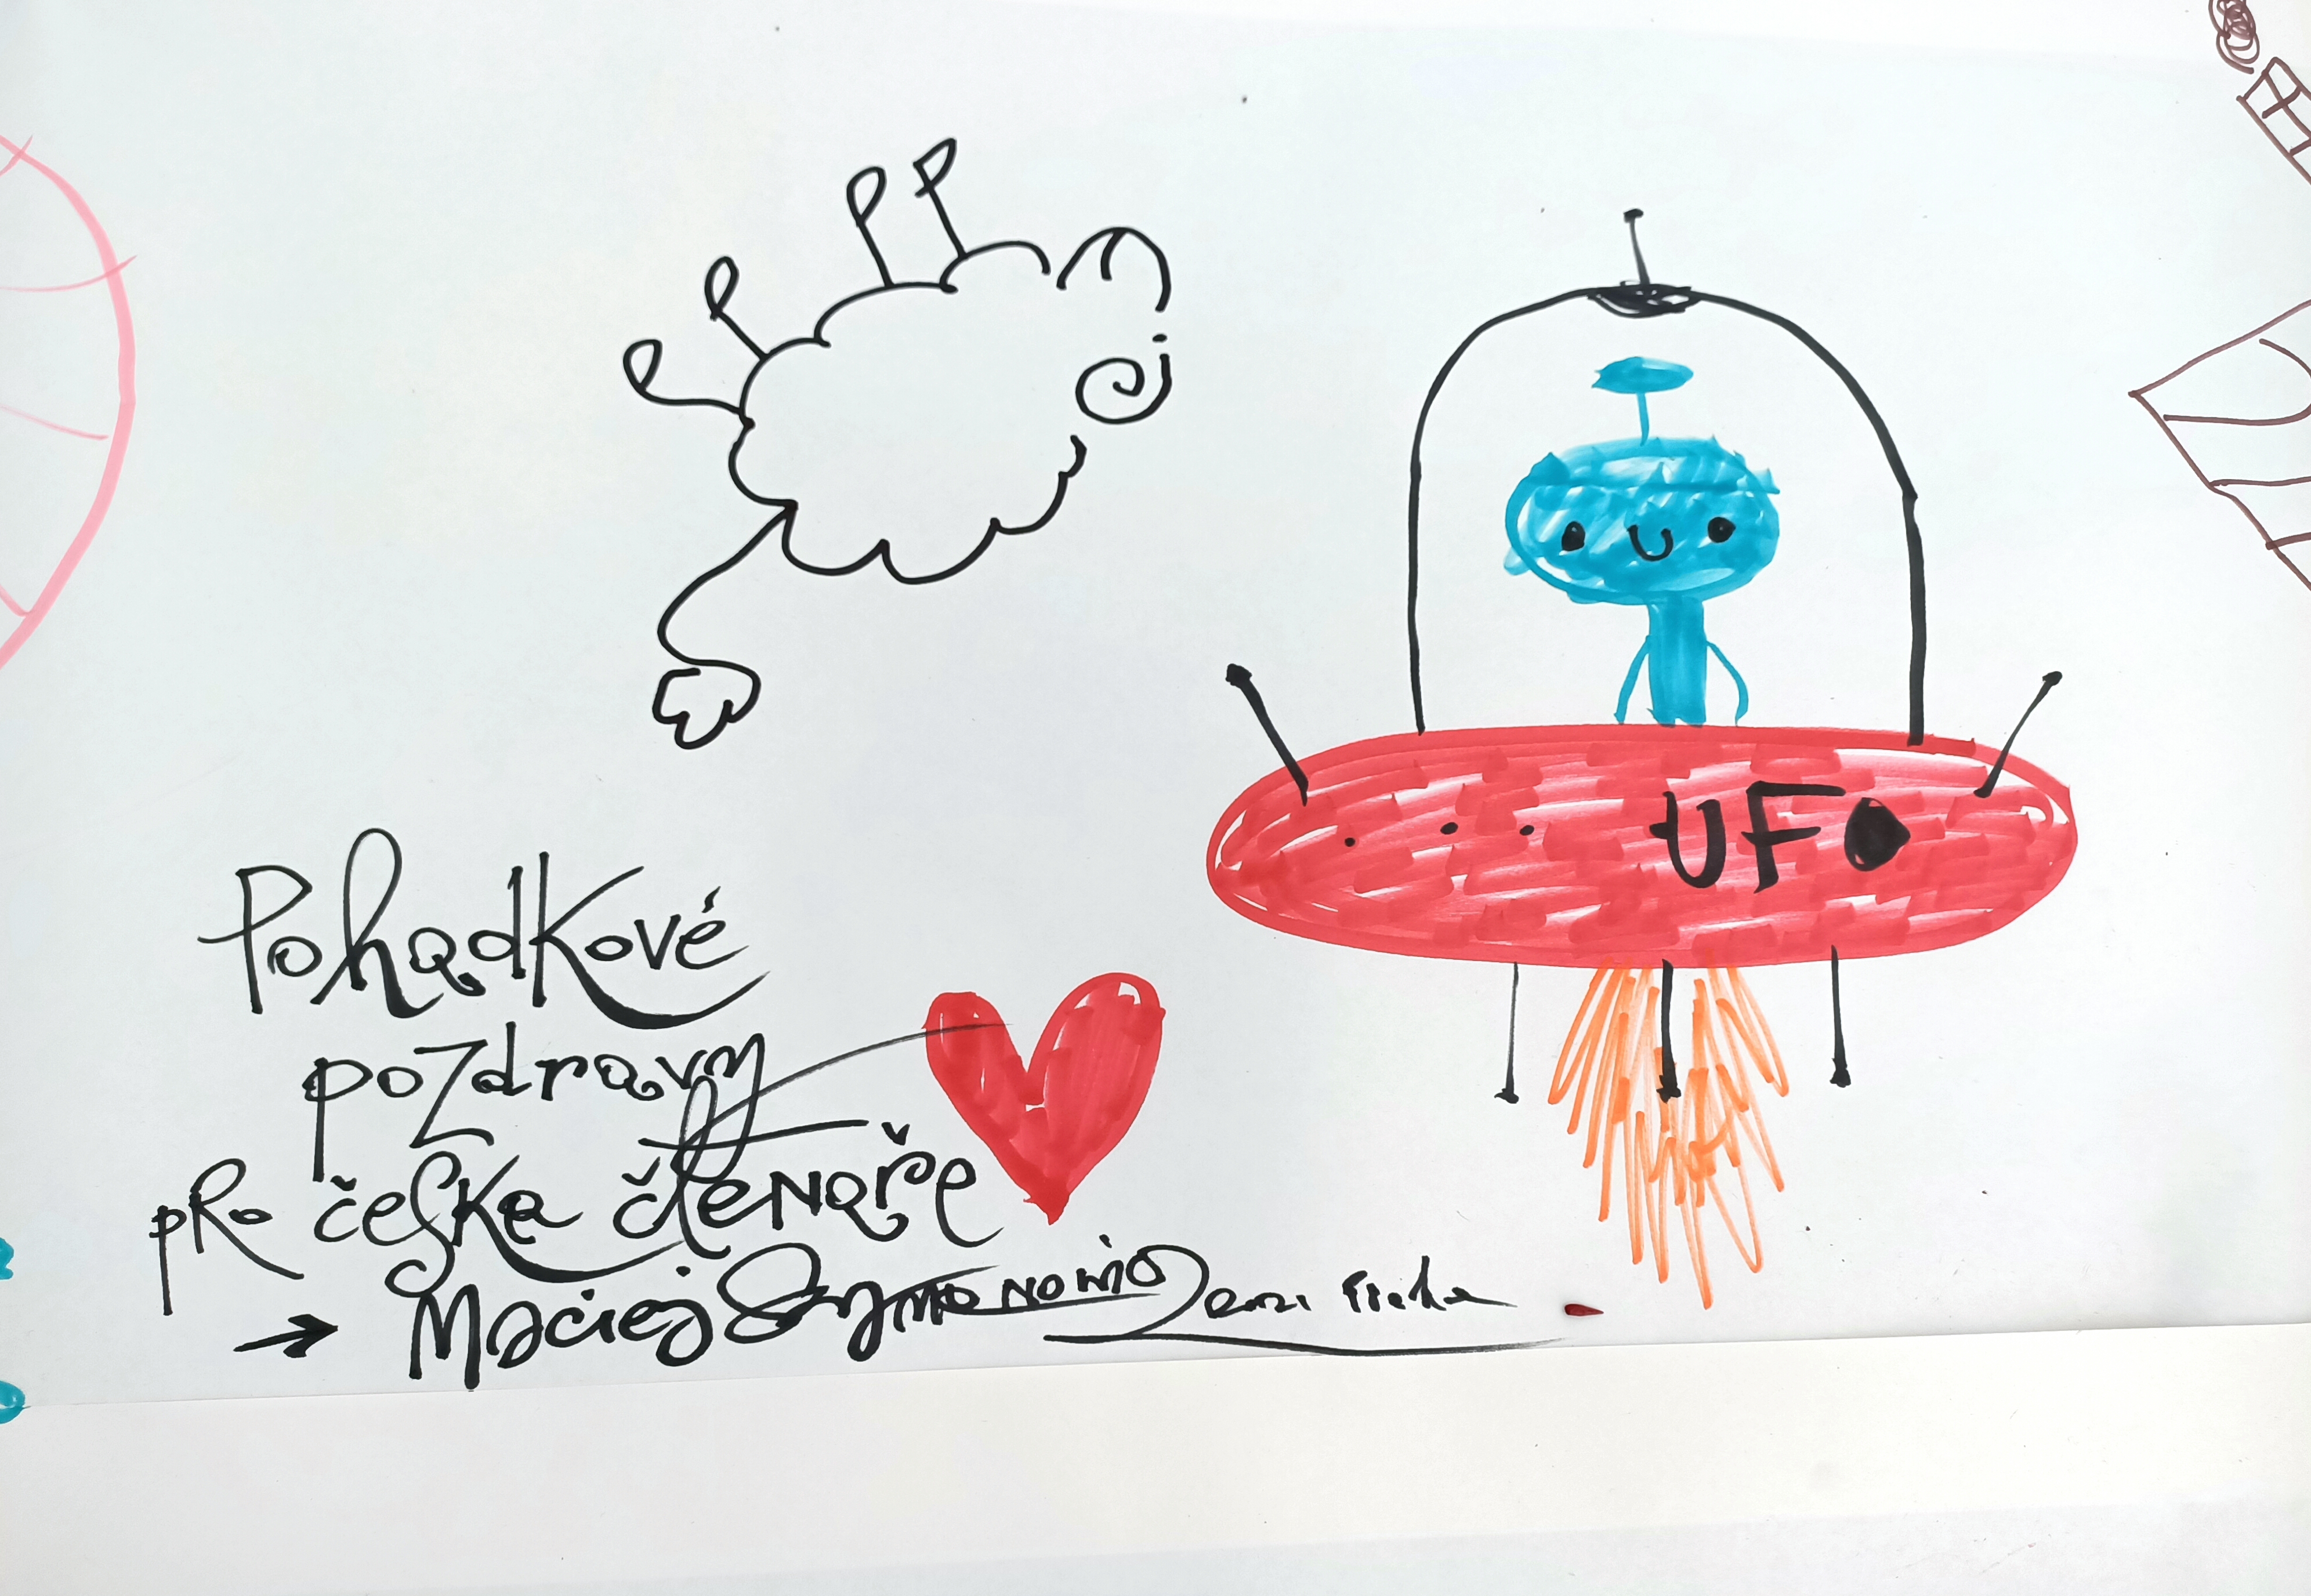 UFO
Pohadkové
pozdravy
pro česke čtenaře
→ Maciej Szymanowicz